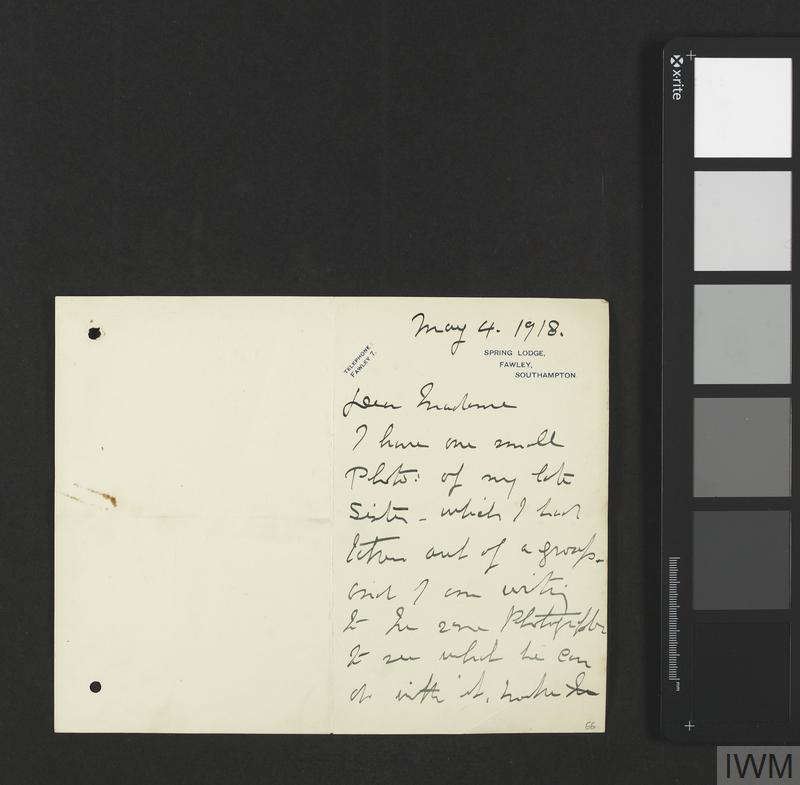 May 4. 1918.
TELEPHONE:
FAWLEY 7.
SPRING LODGE,
FAWLEY,
SOUTHAMPTON.
Dear Madame
I have one small
Photo: of my late
Sister - which I had
taken out of a group -
and I am writing
to the same Photographer
to see what he can
do with it,
66
x-rite
mm
IWM